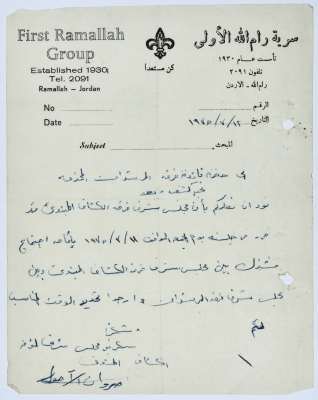 First Ramallah
Group
Established 1930
Tel. 2091
Ramallah — Jordan
No
Date
كن مستعداً
سرية رام الله الأولى
تأسست عام ١٩٣٠
تلفون ٢٠٩١
رام الله - الاردن
الرقم
التاريخ ١٩٧٥/٧/١٢
Subject
المبحث
حضرة قائدة فرقة المرشدات المحترمة
تحية كشفية وبعد
نود ان نعلمكم بأن مجلس شرف فرقة الكشاف المبتدئ قد
قرر من جلسته يوم الجمعة الموافق ١٩٧٥/٧/١١ بأقامة اجتماع
مشترك بين مجلس شرف فرقة الكشاف المبتدئ وبين
مجلس شرف فرقة المرشدات وارجوا تحديد الوقت المناسب
لكم
شكرا
سكرتير مجلس شرف فرقة
الكشاف المبتدئ
مروان